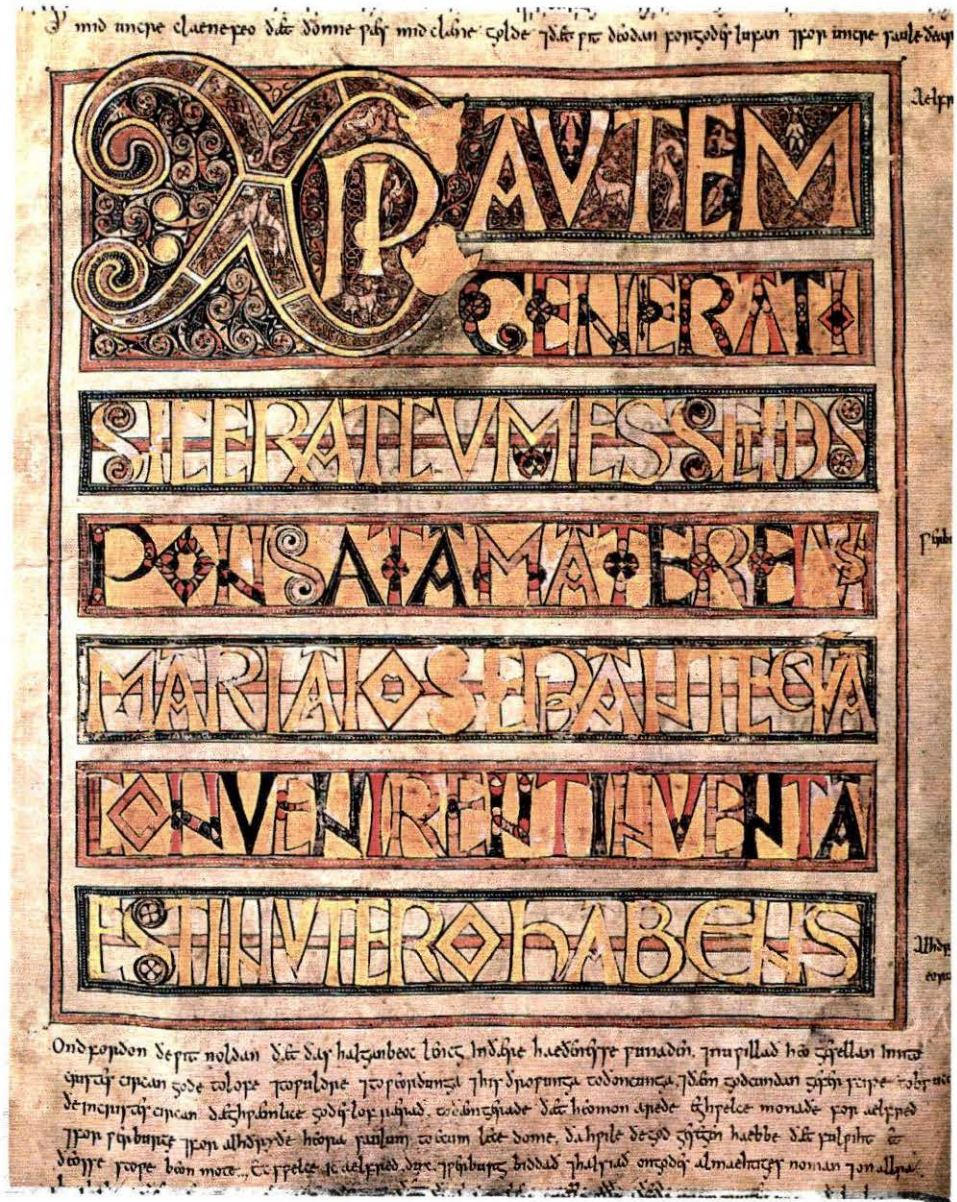 ⁊ mid uncre claene feo ðæt ðonne wæs mid clæne golde ⁊ðæt wit deodan for godes lufan ⁊for uncre saule ðearf
Aelfre
XPI AUTEM
GENERATI
SIC ERAT CUM ESSET DIS
PONSATA MATER EIUS
MARIA IOSEPH ANTEQUA
CONVENIRENT INVENTA
EST IN UTERO HABENS
Ond forðon ðe wit noldan ðæt ðas halgan beoc lencg in ðære haeðenesse wunaden, ⁊nu willað heo gesellan inn to
cristes circan gode to lofe ⁊to wuldre ⁊to weorðunga ⁊his ðrowunga to ðoncunga, ⁊ðæm godcundan geferscipe to brucen
ðe in cristes circan dæghwæmlice godes lof rærað, to ðæm gerade ðæt heo mon arede eghwelce monaðe for aelfred
⁊for werburge ⁊for alhðryðe heora saulum to ecum lecedome, ða hwile ðe god gesegen haebbe ðæt fulwiht æt
ðeosse stowe beon mote. Ec swelce ic aelfred dux ⁊werburg biddað ⁊halsiað on godes almaehtiges noman ⁊on allra